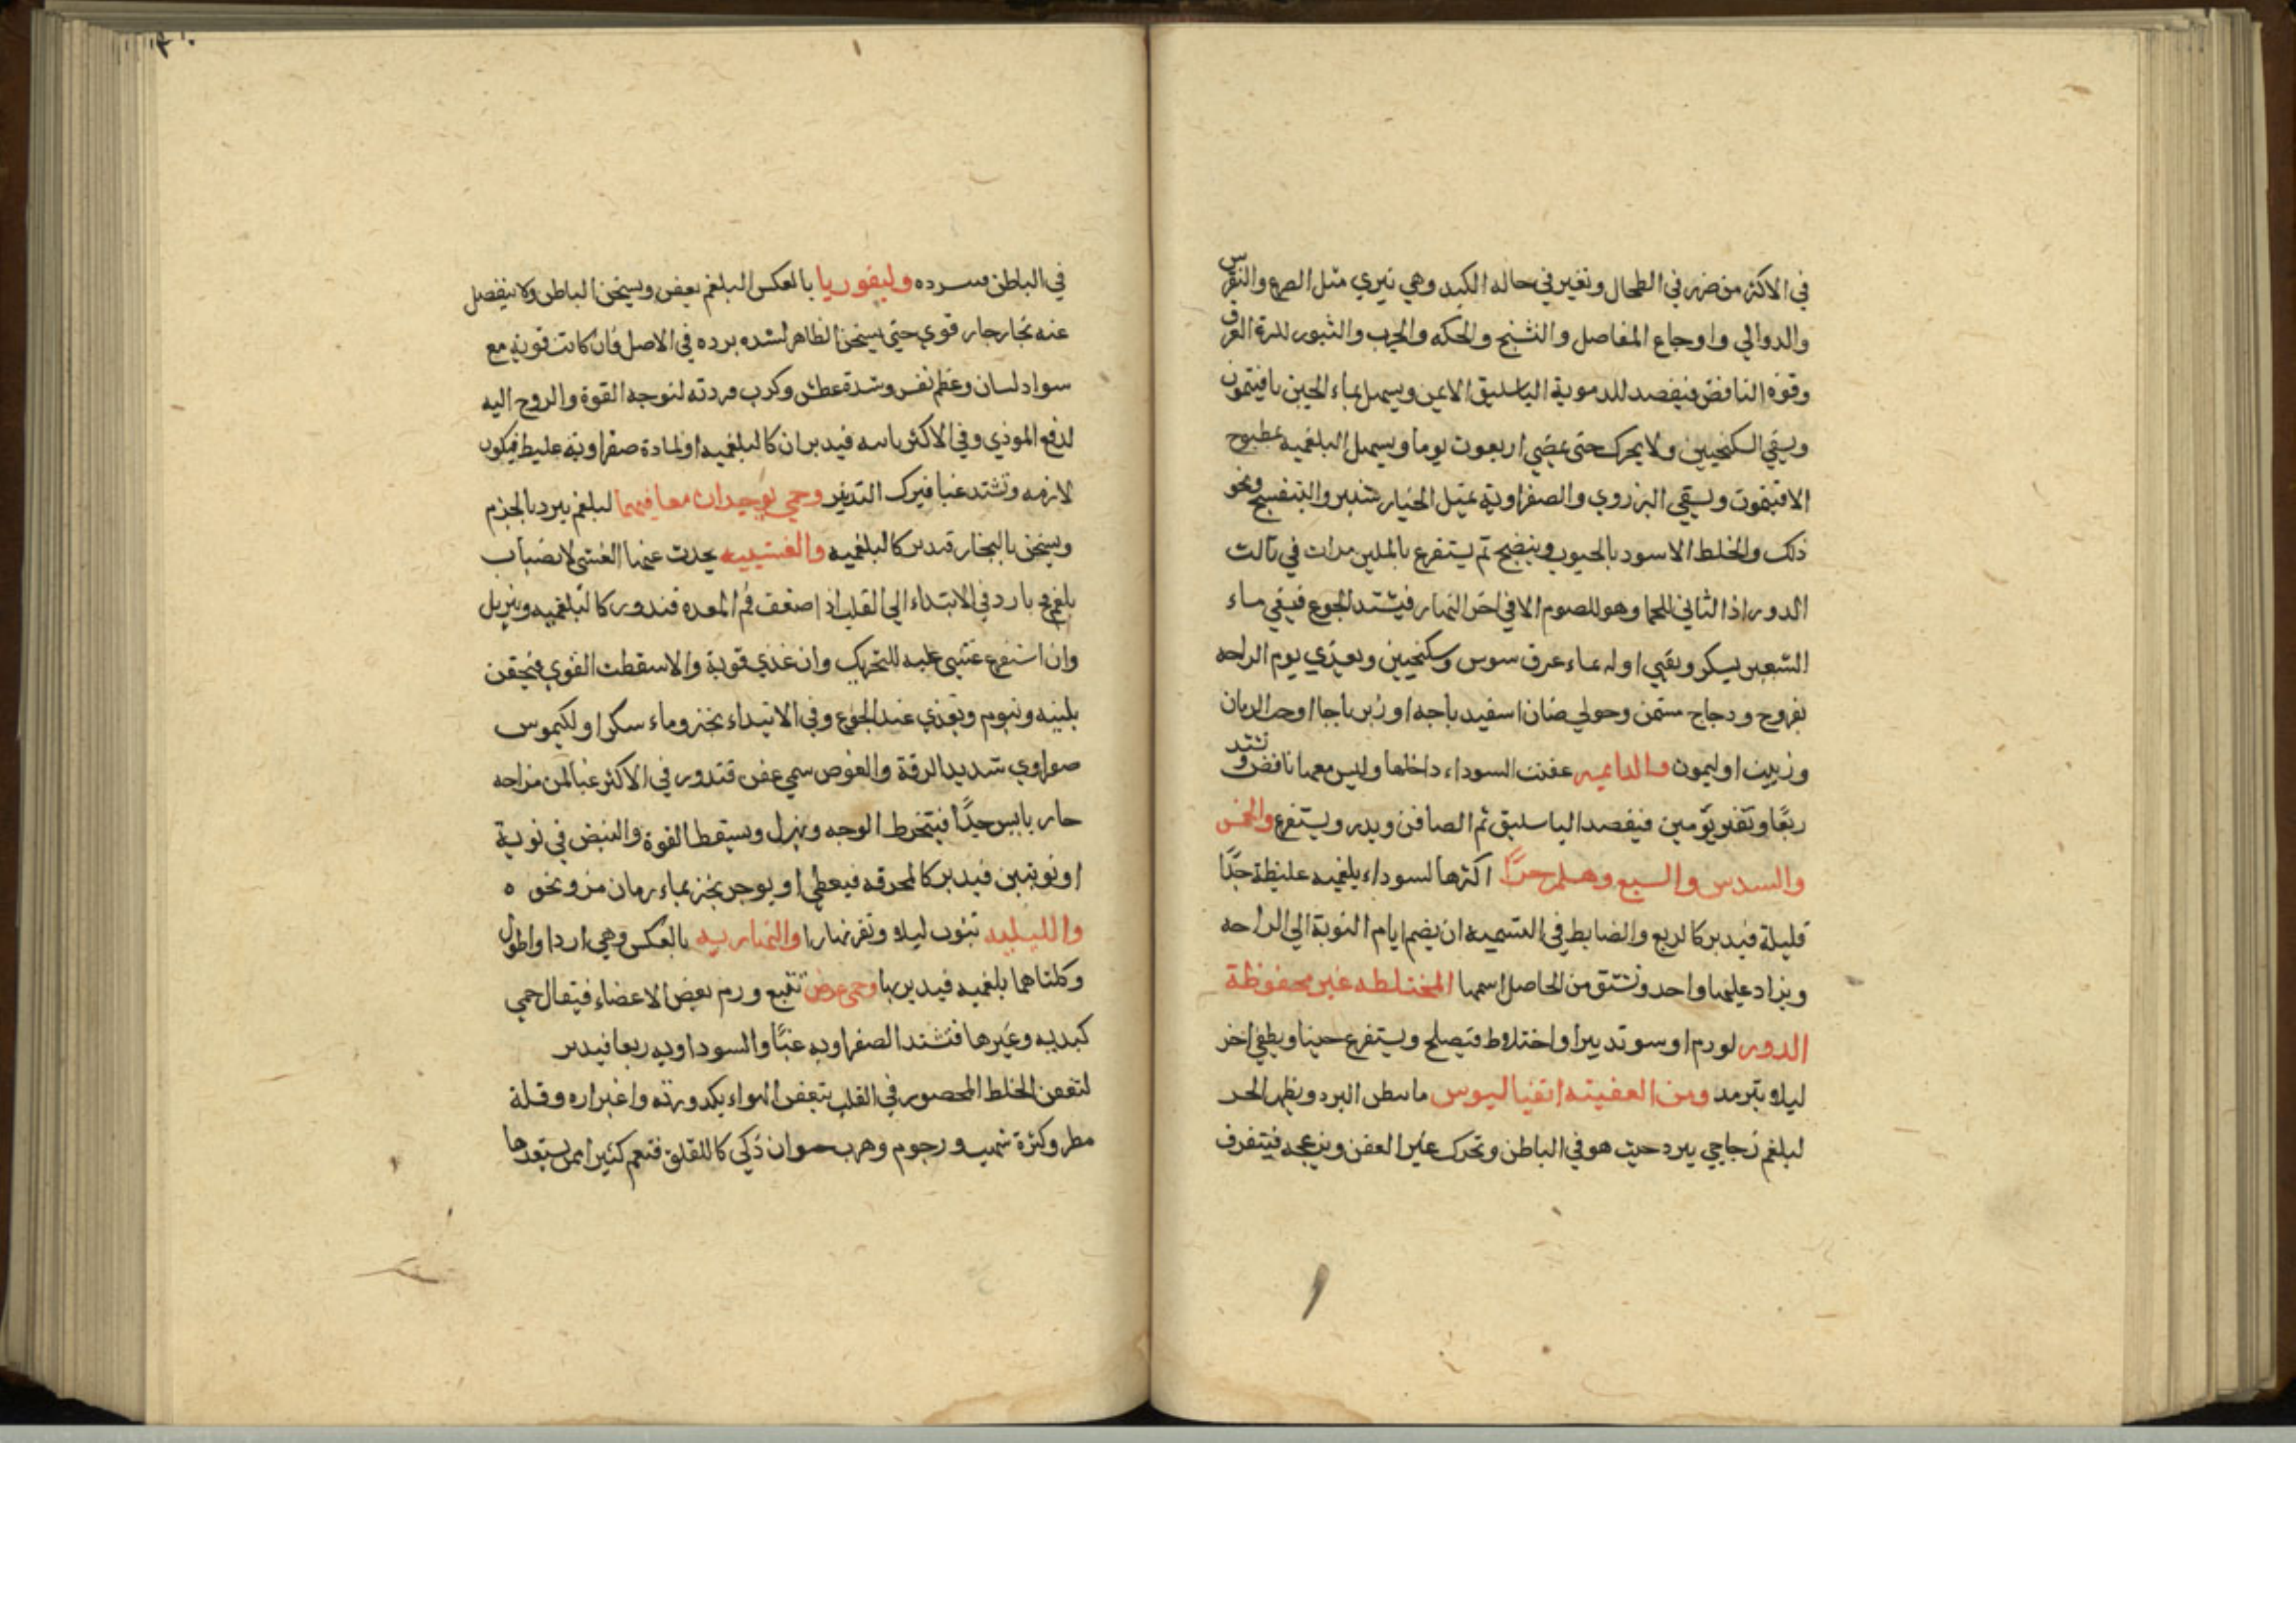 في الاكثر من ضرر في الطحال وتغير في حاله الكبد وهي تبري مثل الصرع والنقرس
والدوالي واوجاع المفاصل والتشنج والحكه والجرب والبثور لدرة العرق
وقوة النافض فيفصد للدموية الباسليق الايمن ويسهل بماء الجبن بافتيمون
ويسقي السكنجبين ولا يحرك حتى يمضي اربعون يوما ويسهل البلغميه بمطبوخ
الافتيمون ويسقي البزروي والصفراويه بمثل الخيار شنبر والبنفسج ونحو
ذلك والخلط الاسود بالحبوب وينضج ثم يستفرغ بالملين مرات في ثالث
الدور اذ الثاني للحما وهو للصوم الا في اخر النهار فيشتد الجوع فيقي ماء
الشعير بسكر ويقيي اوله بماء عرق سوس وسكنجبين ويغذي يوم الراحه
بفروج ودجاج مسمن وحولي ضان اسفيد باجه او زيرباجا او حب الرمان
وزبيب او ليمون والدايميه عفنت السوداء داخلها وليس معها نافض وتشتد
ربعا وتفتر يومين فيفصد الباسليق ثم الصافن ويدر ويستفرغ والخمس
والسدس والسبع وهلم جرا اكثرها لسوداء بلغميه غليظة جدا
قليلة فيدبر كالربع والضابط في التسميه ان يضم ايام النوبة الي الراحه
ويزاد عليها واحد وتشتق من الحاصل اسمها المختلطه غير محفوظة
الدور لورم او سو تدبير او اختلاط فيصلح ويستفرغ حينا ويطفي اخر
ليلا يترمد ومن العفينه انقيا اليوس مابطن البرد وظهر الحر
لبلغم زجاجي يبرد حيث هو في الباطن وتحرك غير العفن ويزعجه فيتفرق
في الباطن وسرده وليفوريا بالعكس البلغم يعفن ويسخن الباطن ولا ينفصل
عنه بخار حار قوي حتى يسخن الظاهر لشده برده في الاصل فان كانت قوية مع
سواد لسان وعظم نفس وشدة عطش وكرب فردته لتوجه القوة والروح اليه
لدفع الموذي وفي الاكثر باسه فيدبران كالبلغميه او لمادة صفراوية غليط فيكون
لازمه وتشتد غبا فيرك التدبير وحمي يوجدان معا فيهما لبلغم يبرد بالجزم
ويسخن بالبخار تدبر كالبلغميه والغشييه يحدث عنها الغشي لانصباب
بلغم فج بارد في الابتداء الي القلب اذا ضعف فم المعده فتدور كالبلغميه ويزيل
وان استفرغ غشي عليه للتحريك وان غذي قوية والا سقطت القوي فيحقن
بلينه وتنوم ويغذي عند الجوع وفي الابتداء بخبز وماء سكر او لكيموس
صفراوي شديد الرقة والغوص سمي عفن فتدور في الاكثر غبا لمن مزاجه
حار يابس جدا فيتخرط الوجه ويهزل ويسقط القوة والنبض في نوبة
او نوبتين فيدبر كالمحرقه فيعطي او يوجر بخبز بماء رمان مز ونحو ه
والليليه تنوب ليلا وتفتر نهارا والنهاريه بالعكس وهي اردا واطول
وكلتاهما بلغميه فيدبر بها وحمي عرض تتبع ورم بعض الاعضاء فيقال حمي
كبديه وغيرها فتشتد الصفراويه غبا والسوداويه ربعا فيدبر
لتعفن الخلط المحصور في القلب بتعفن الهواء بكدورته واغبراره وقلة
مطر وكثرة شهب ورجوم وهرب حيوان ذكي كاللقلق فتعم كثيرا من يستعد لها